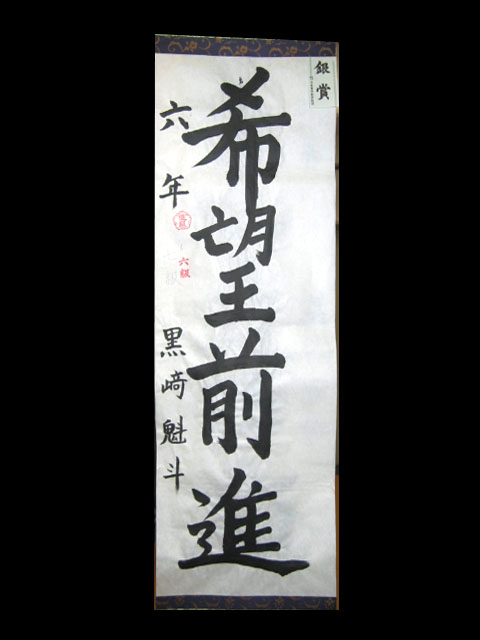 銀賞
希望前進
六年
六級
黒﨑魁斗